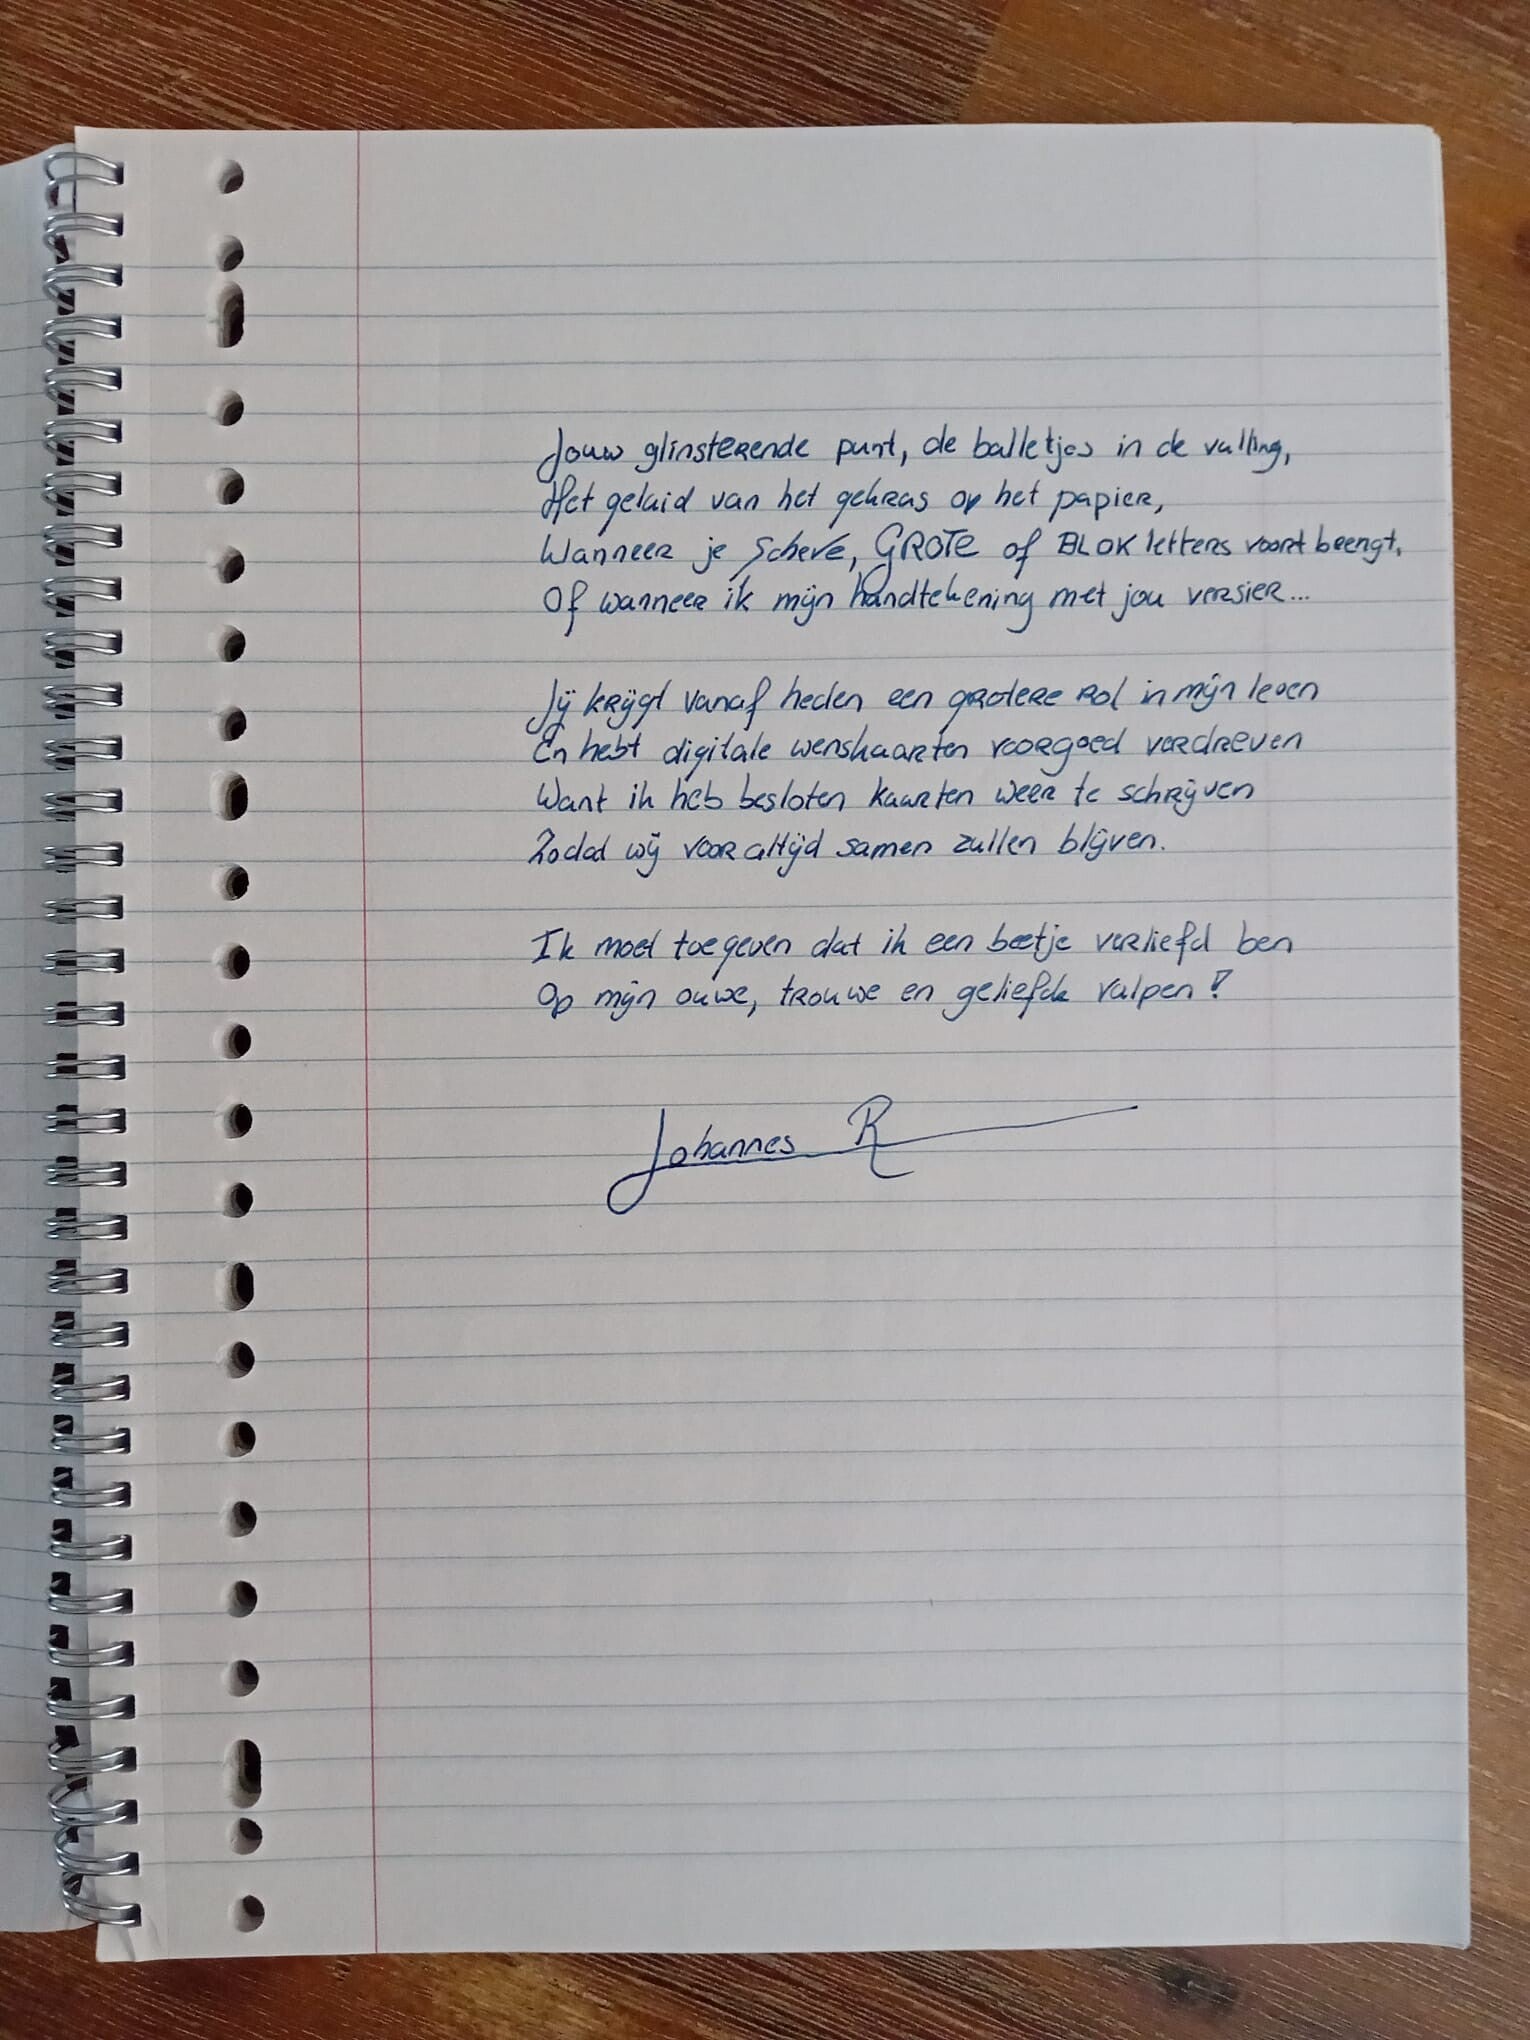 Jouw glinsterende punt, de balletjes in de vulling,
Het geluid van het gekras op het papier,
Wanneer je scheve, GROTE of BLOK letters voort beengt,
Of wanneer ik mijn handtekening met jou versier...
Jij krijgt vanaf heden een grotere rol in mijn leven
En hebt digitale wenskaarten voorgoed verdreven
Want ik heb besloten kaarten weer te schrijven
Zodat wij voor altijd samen zullen blijven.
Ik moet toegeven dat ik een beetje verliefd ben
Op mijn ouwe, trouwe en geliefde vulpen!
Johannes R